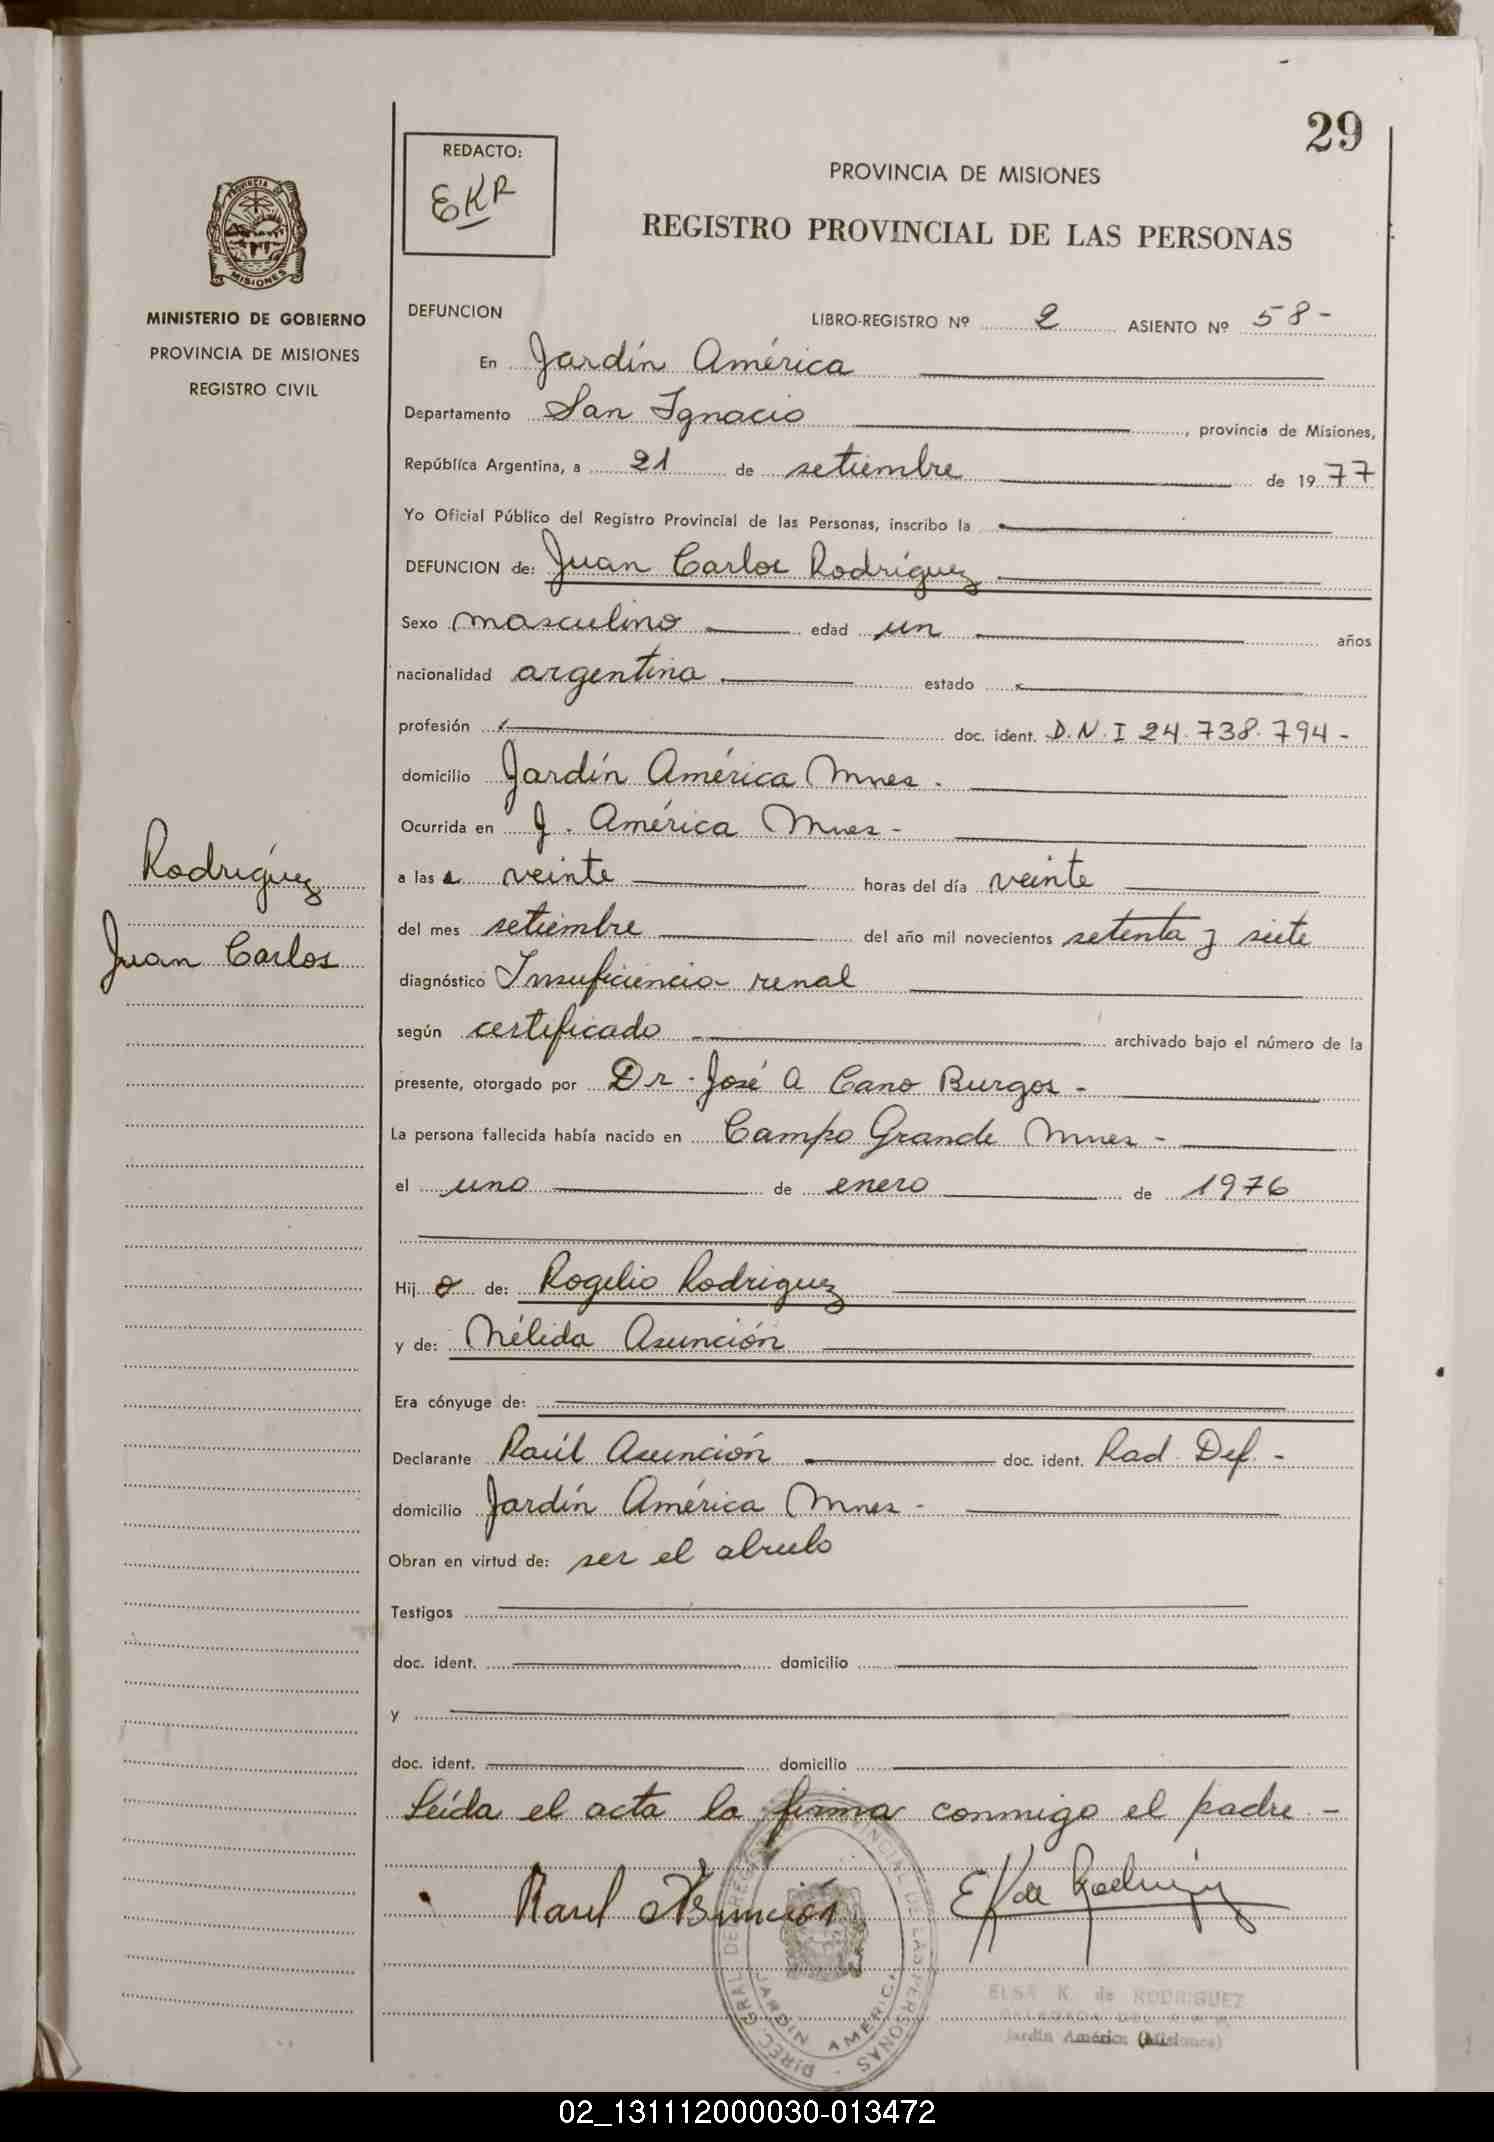 29
REDACTO:
EKR
PROVINCIA DE MISIONES
REGISTRO PROVINCIAL DE LAS PERSONAS
PROVINCIA DE
MISIONES
MINISTERIO DE GOBIERNO
PROVINCIA DE MISIONES
REGISTRO CIVIL
DEFUNCION
LIBRO-REGISTRO Nº 2 ASIENTO Nº 58-
En Jardín América
Departamento San Ignacio, provincia de Misiones,
República Argentina, a 21 de setiembre de 1977
Yo Oficial Público del Registro Provincial de las Personas, inscribo la
DEFUNCION de: Juan Carlos Rodríguez
Sexo masculino edad un años
nacionalidad argentina estado
profesión doc. ident. D.N.I 24.738.794-
domicilio Jardín América Mnes.
Ocurrida en J. América Mnes-
a las veinte horas del día veinte
del mes setiembre del año mil novecientos setenta y siete
diagnóstico Insuficiencia renal
según certificado archivado bajo el número de la
presente, otorgado por Dr. José A Cano Burgos-
La persona fallecida había nacido en Campo Grande Mnes-
el uno de enero de 1976
Hijo de: Rogelio Rodriguez
y de: Nélida Asunción
Era cónyuge de:
Declarante Raúl Asunción doc. ident. Rad. Def.-
domicilio Jardín América Mnes-
Obran en virtud de: ser el abuelo
Testigos
doc. ident. domicilio
y
doc. ident. domicilio
Leída el acta la firma conmigo el padre-
Rodríguez
Juan Carlos
Raul Asunción
EK de Rodriguez
DIREC. GRAL. DE REGISTRO PROVINCIAL DE LAS PERSONAS
JARDIN AMERICA
ELSA K. de RODRIGUEZ
Jardín América (Misiones)
02_131112000030-013472